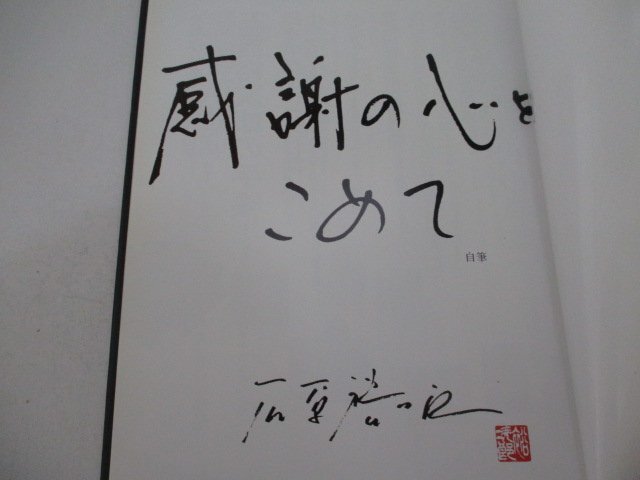 感謝の心を
こめて
自筆
石原裕次郎